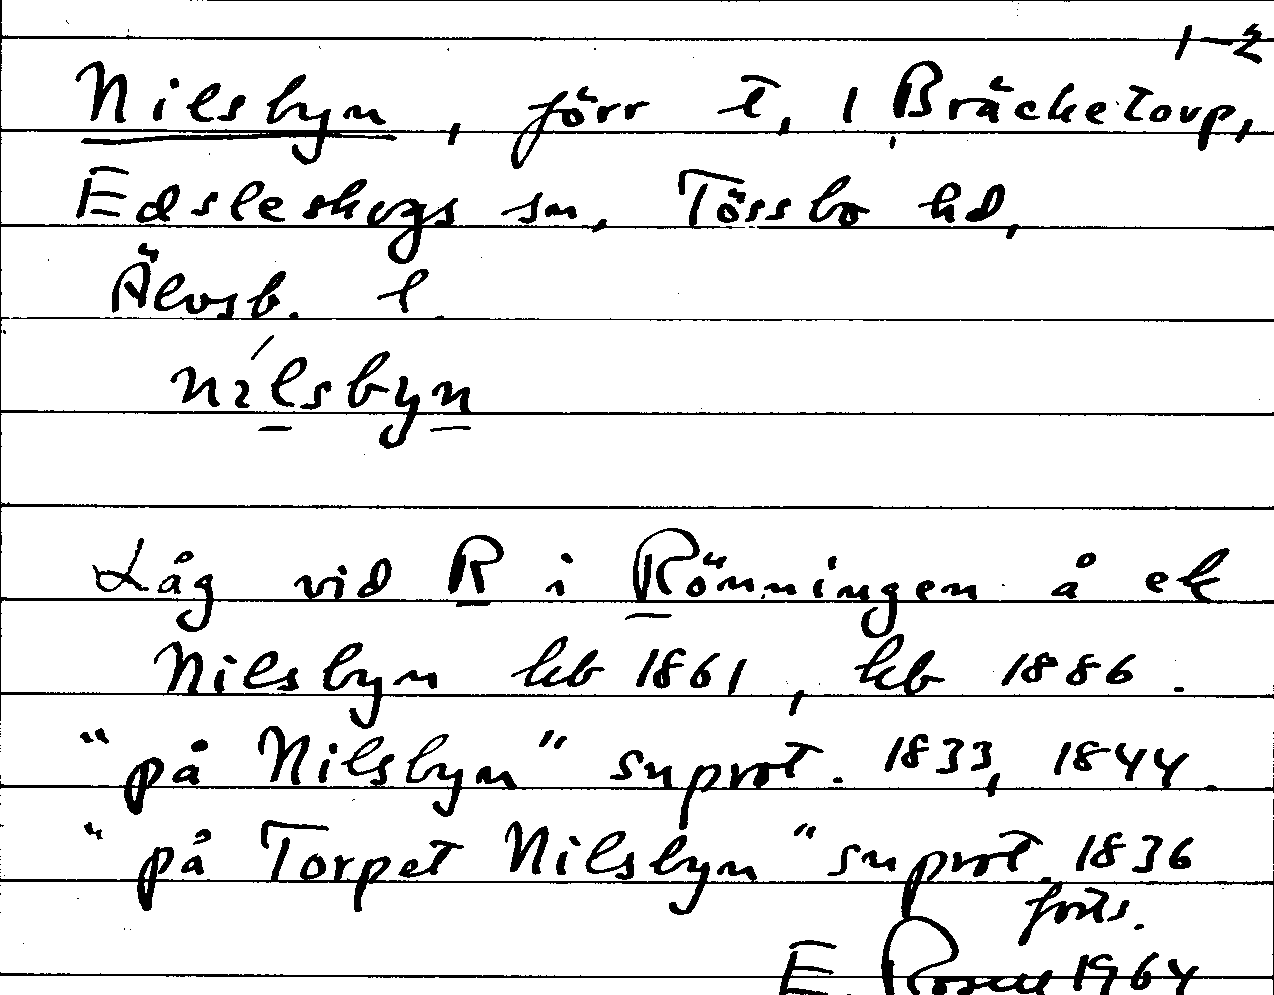 1-2
Nilsbyn, förr t, i Bräcketorp,
Edsleskogs sn, Tössbo hd,
Älvsb. l.
nílsbyn
Låg vid R i Rönningen å ek
Nilsbyn hb 1861, kb 1886.
"på Nilsbyn" snprot. 1833, 1844.
"på Torpet Nilsbyn" snprot. 1836
forts.
E. Rosell 1964